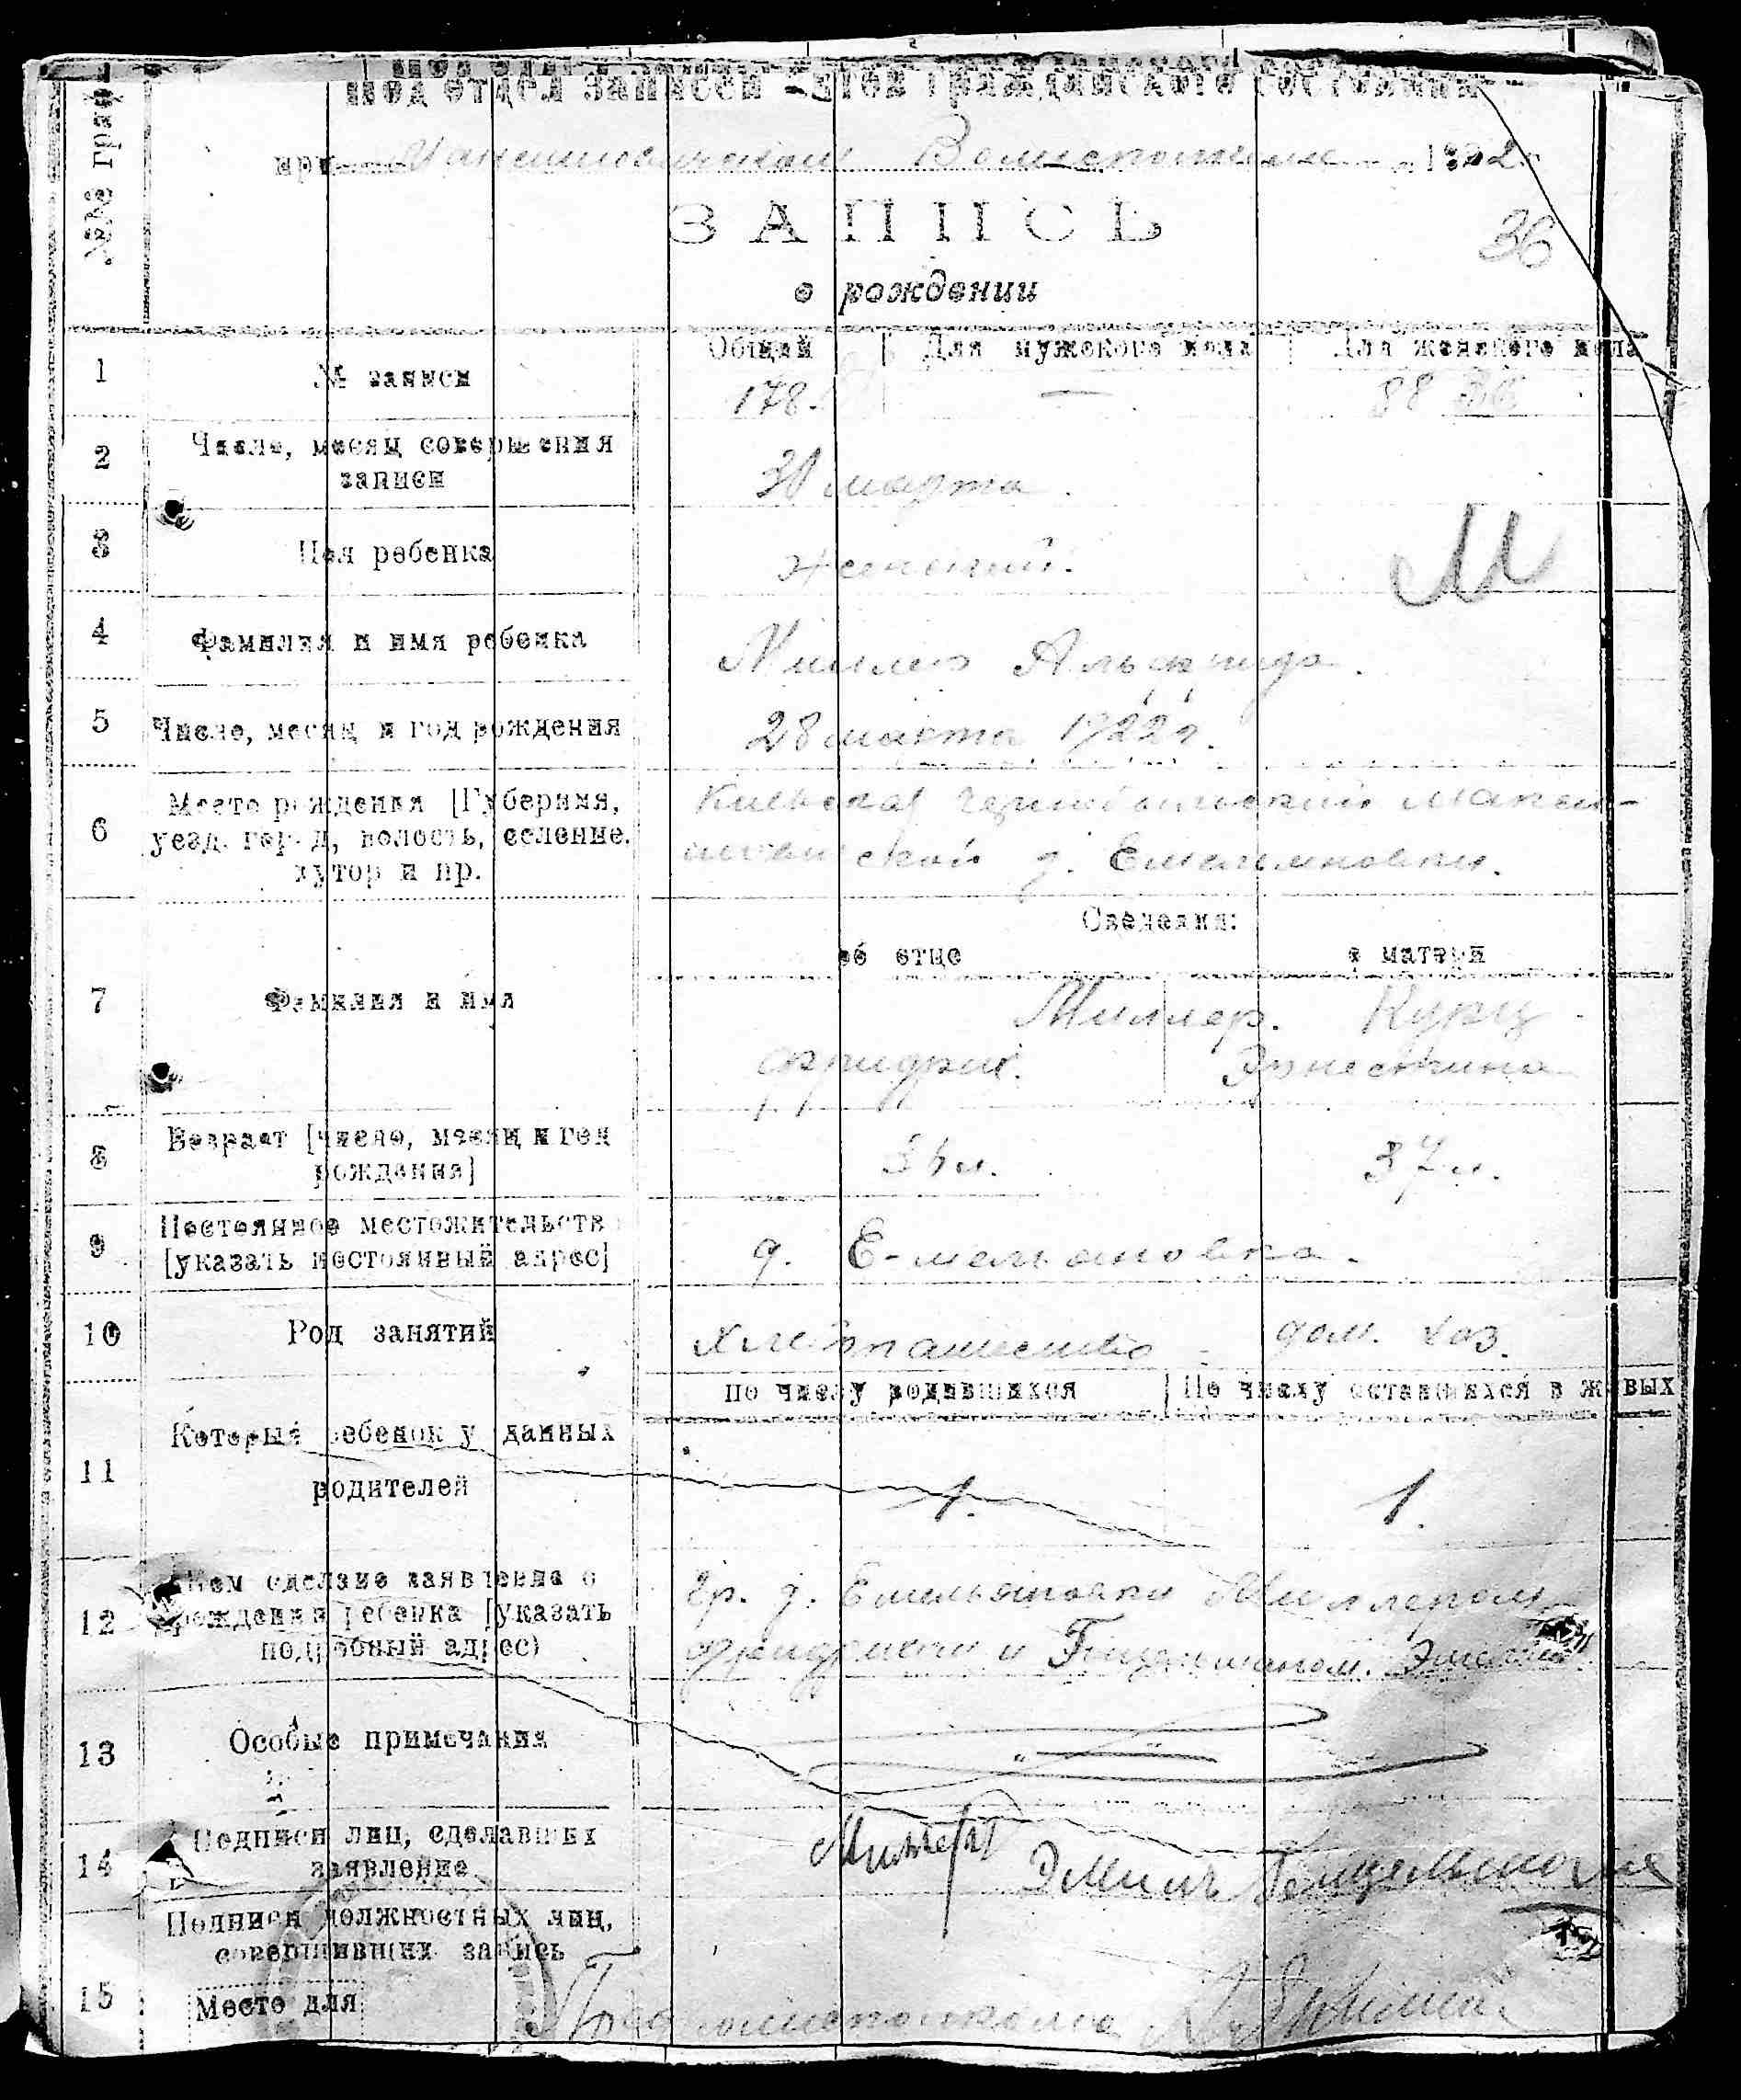 №№ граф
Под'отдел записей актов гражданского состояния
при Волисполкоме 1922 г.
ЗАПИСЬ
36
о рождении
Общий Для мужского пола Для женского пола
1 № записи 178. — 88
2 Число, месяц совершения
записи 30 марта.
3 Пол ребенка женский. М
4 Фамилия и имя ребенка Миллер Альфрида.
5 Число, месяц и год рождения 28 марта 1922 г.
6 Место рождения [Губерния,
уезд. город, волость, селение.
хутор и пр.
Киевская
д. Емельяновки.
Сведения:
об отце о матери
7 Фамилия и имя Миллер. Курц
Фридрих. Эрнестина
8 Возраст [число, месяц и год
рождения] 37 л.
9 Постоянное местожительство
[указать постоянный адрес] д. Емельяновка.
10 Род занятий хлебопашество дом. хоз.
по числу родившихся По числу оставшихся в живых
11 Который ребенок у данных
родителей 1. 1.
12 Кем сделано заявление о
рождении ребенка [указать
подробный адрес)
Гр. д. Емельяновки Миллером
Фридрихом и
13 Особые примечания
14 Подписи лиц, сделавших
заявление Миллер Эмиль
Подписи должностных лиц,
совершивших запись
15 Место для